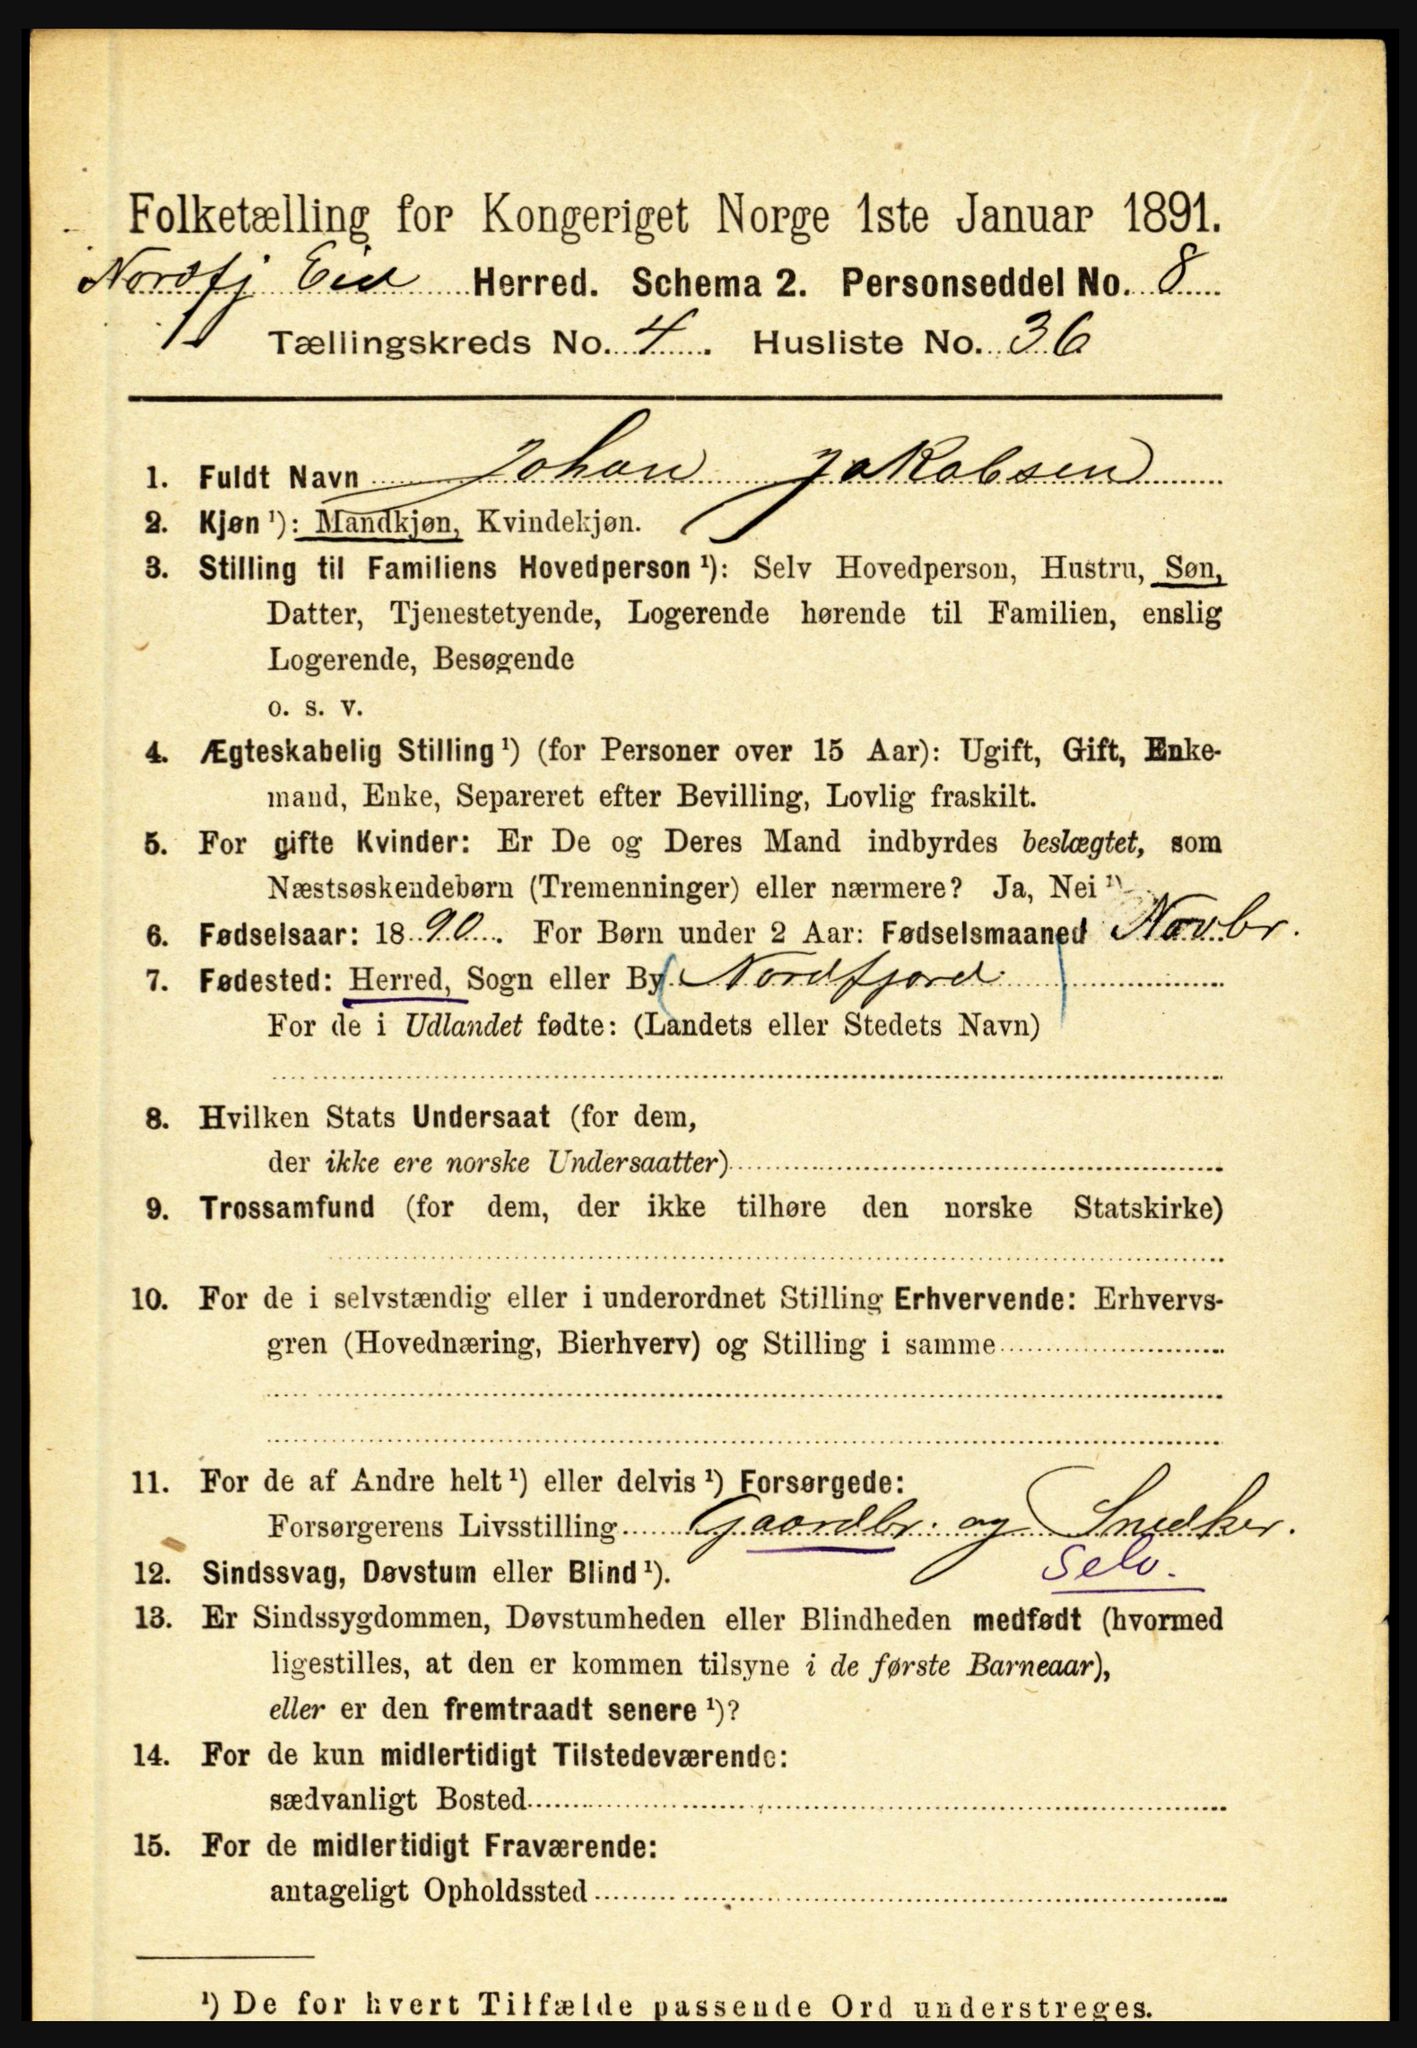 Folketælling for Kongeriget Norge 1ste Januar 1891.
Nordfj Eid Herred. Schema 2. Personseddel No. 8
Tællingskreds No. 4. Husliste No. 36
1. Fuldt Navn Johan Jakobsen
2. Kjøn ¹): Mandkjøn, Kvindekjøn.
3. Stilling til Familiens Hovedperson ¹): Selv Hovedperson, Hustru, Søn,
Datter, Tjenestetyende, Logerende hørende til Familien, enslig
Logerende, Besøgende
o. s. v.
4. Ægteskabelig Stilling ¹) (for Personer over 15 Aar): Ugift, Gift, Enke-
mand, Enke, Separeret efter Bevilling, Lovlig fraskilt.
5. For gifte Kvinder: Er De og Deres Mand indbyrdes beslægtet, som
Næstsøskendebørn (Tremenninger) eller nærmere? Ja, Nei ¹)
6. Fødselsaar: 1890. For Børn under 2 Aar: Fødselsmaaned Novbr.
7. Fødested: Herred, Sogn eller By (Nordfjord)
For de i Udlandet fødte: (Landets eller Stedets Navn)
8. Hvilken Stats Undersaat (for dem,
der ikke ere norske Undersaatter)
9. Trossamfund (for dem, der ikke tilhøre den norske Statskirke)
10. For de i selvstændig eller i underordnet Stilling Erhvervende: Erhvervs-
gren (Hovednæring, Bierhverv) og Stilling i samme
11. For de af Andre helt ¹) eller delvis ¹) Forsørgede:
Forsørgerens Livsstilling Gaardbr. og Snedker.
12. Sindssvag, Døvstum eller Blind ¹). Selv.
13. Er Sindssygdommen, Døvstumheden eller Blindheden medfødt (hvormed
ligestilles, at den er kommen tilsyne i de første Barneaar),
eller er den fremtraadt senere ¹)?
14. For de kun midlertidigt Tilstedeværende:
sædvanligt Bosted
15. For de midlertidigt Fraværende:
antageligt Opholdssted
¹) De for hvert Tilfælde passende Ord understreges.